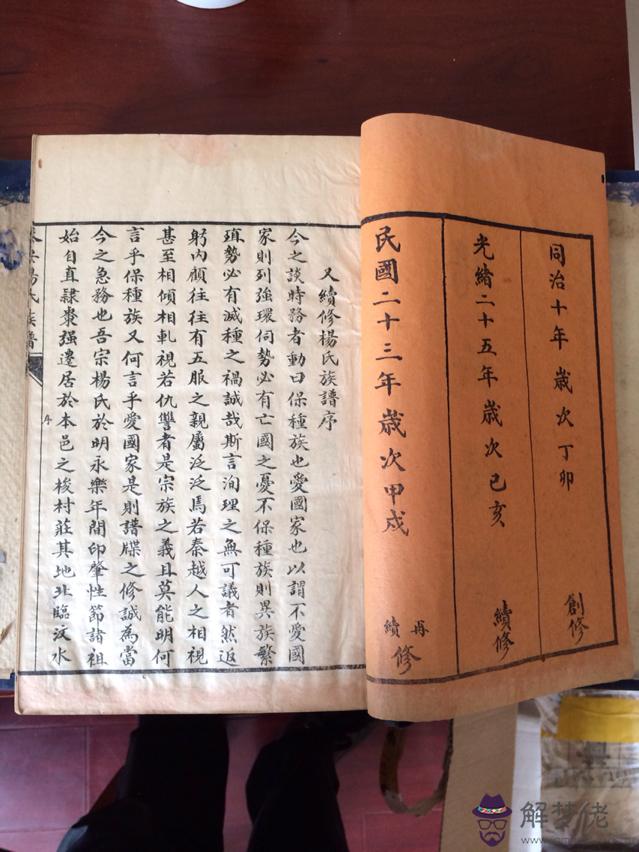 同治十年 歲次丁卯 創修
光緒二十五年歲次己亥 續修
民國二十三年歲次甲戍 再續修
又續修楊氏族譜序
今之談時務者動曰保種族也愛國家也以謂不愛國
家則列強環伺勢必有亡國之憂不保種族則異族繁
殖勢必有滅種之禍誠哉斯言洵理之無可議者然返
躬內顧往往有五服之親屬泛泛焉若秦越人之相視
甚至相傾相軋視若仇讐者是宗族之義且莫能明何
言乎保種族又何言乎愛國家是則譜牒之修誠為當
今之急務也吾宗楊氏於明永樂年間印肇性節諸祖
始自直隸棗强遷居於本邑之梭村莊其地北臨汶水
楊氏族譜
序
解梦佬